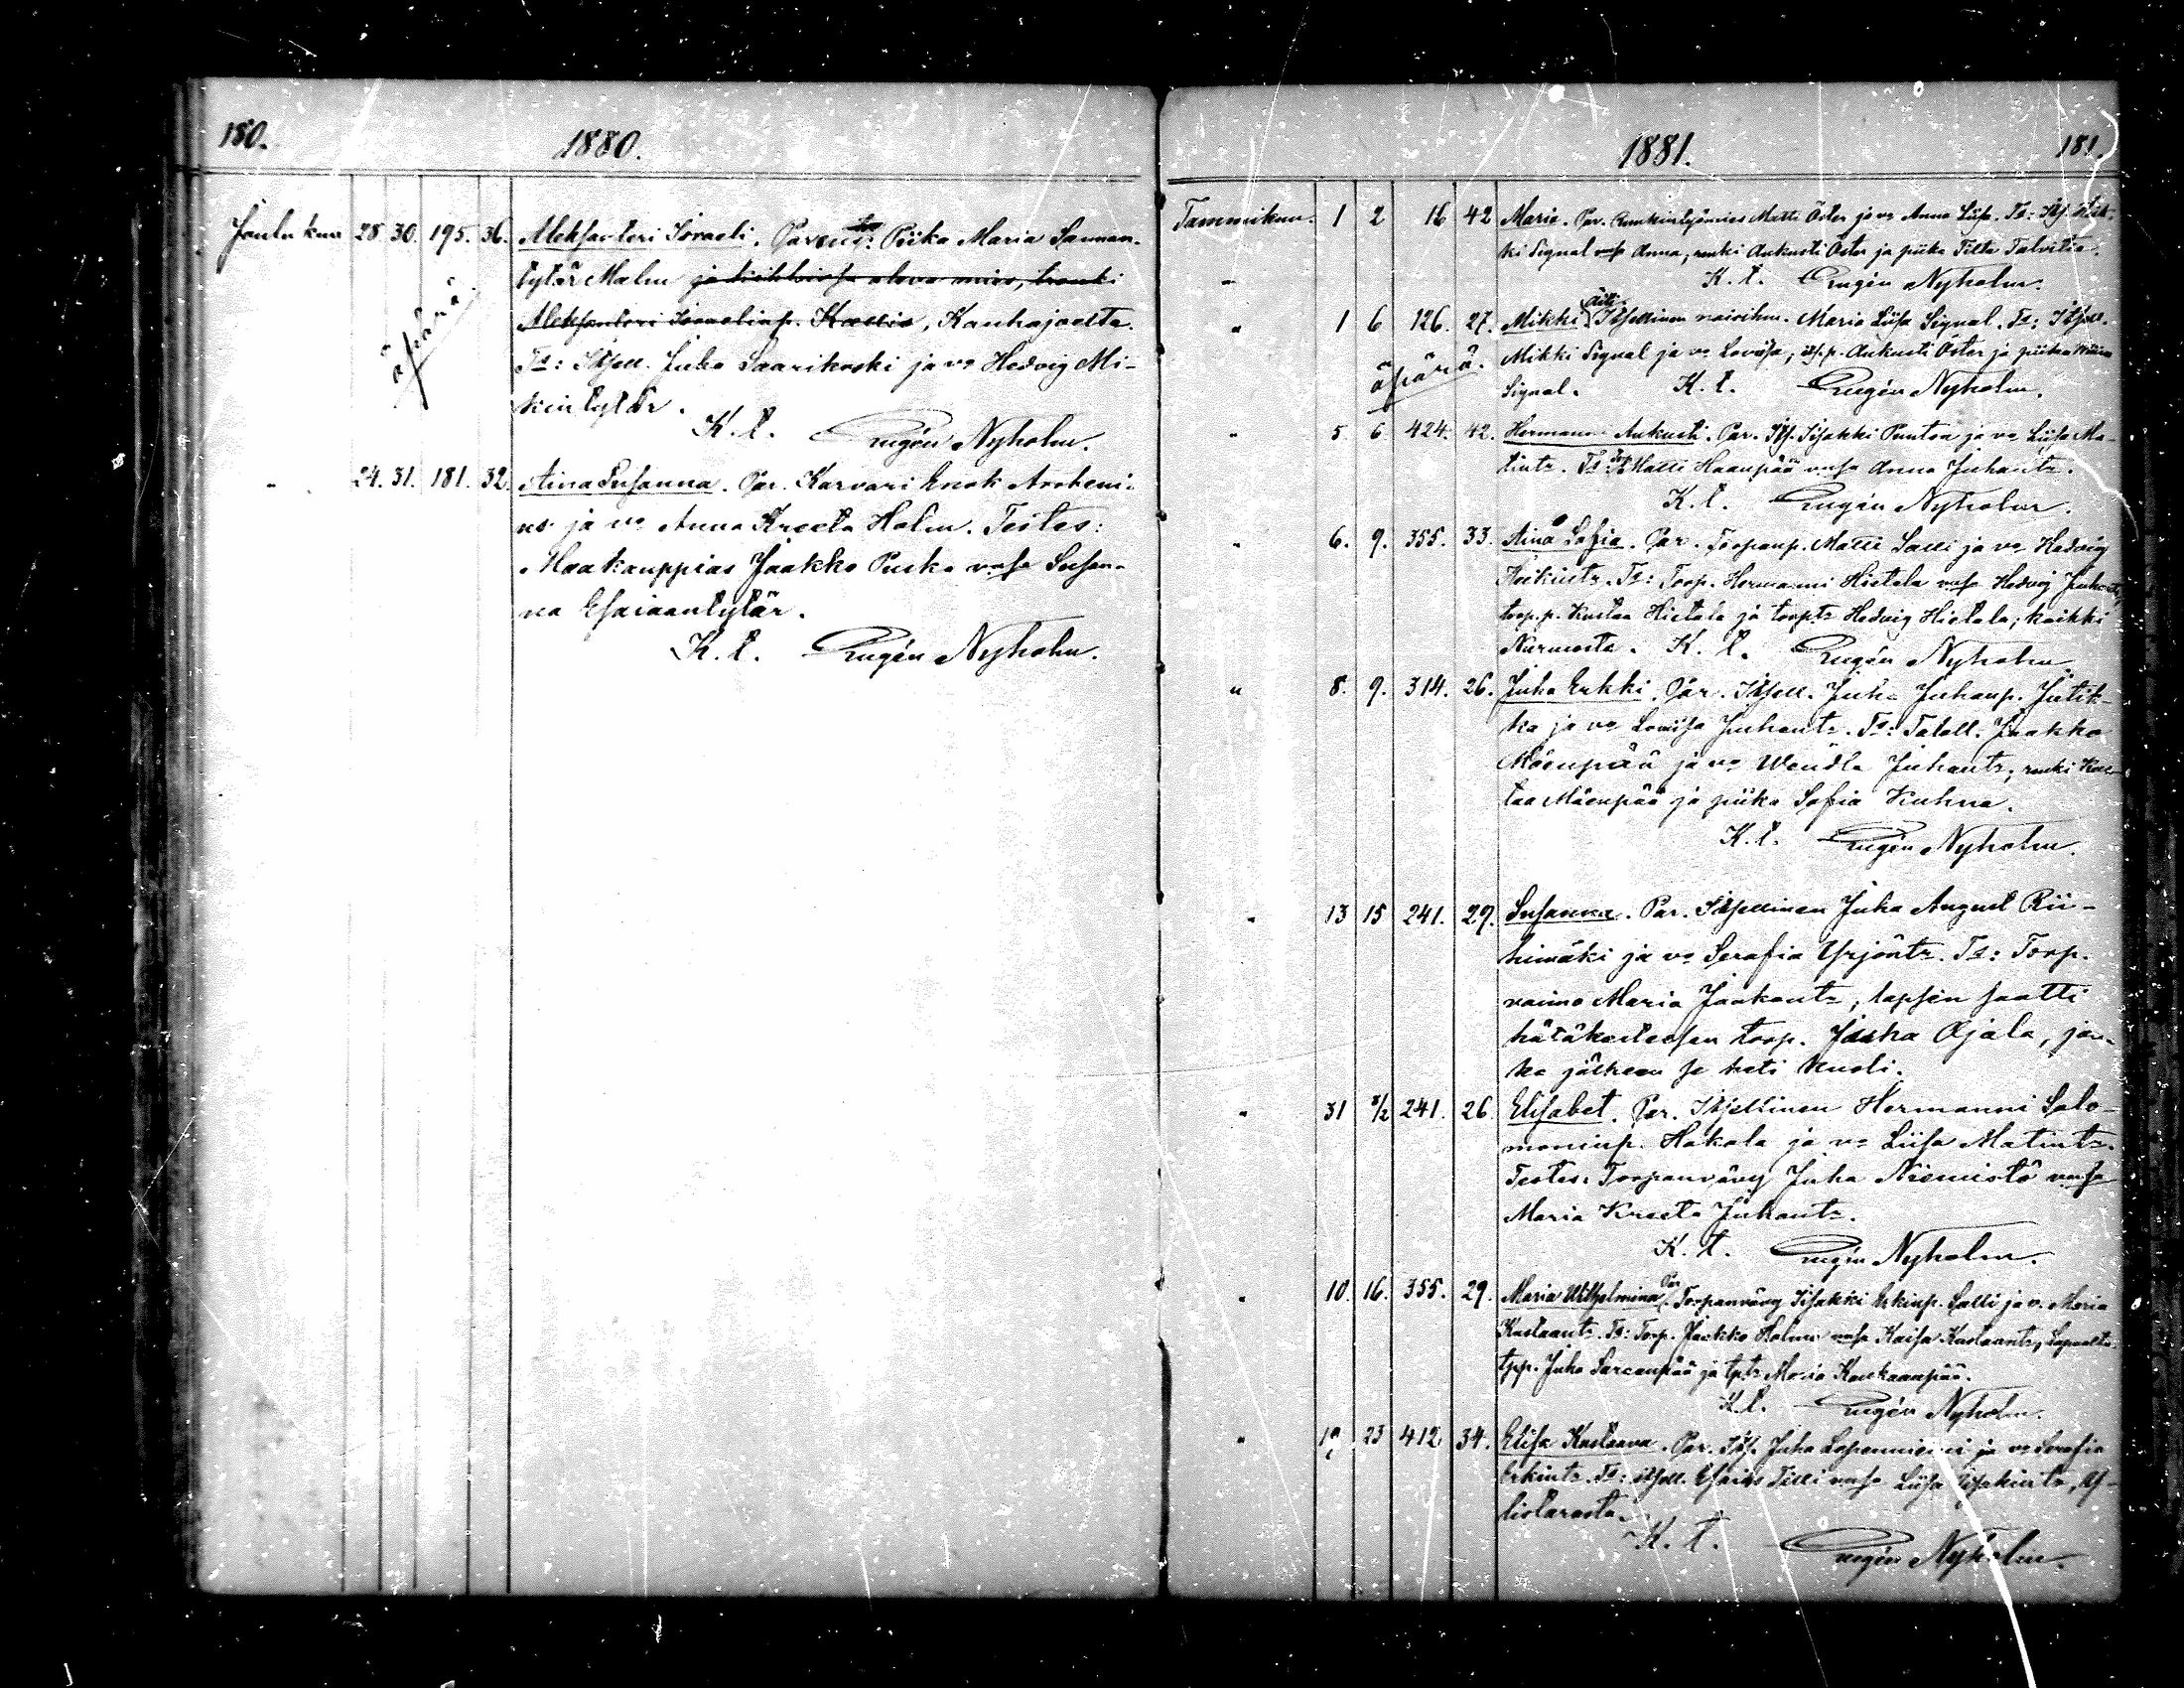 180.
1880.
Joulu kuu 28. 30. 195. 36. Aleksanteri Israeli. Parens: Piika Maria Samuan-
tytär Malm ja kihloissa oleva mies, trenki
Aleksanteri Israelinp. Kallio, Kauhajoelta.
äpärä
Ts: Itsell. Juho Saarikoski ja vo Hedvig Mi-
kintytär.
K. t. Eugén Nyholm.
" 24. 31. 181. 32. Aina Susanna. Par. Karvari Enok Arrheni-
us ja vo Anna Kreeta Holm. Testes:
Maakauppias Jaakko Puska vmsa Susan-
na Esaiaantytär.
K. t. Eugén Nyholm.
1881.
181.
Tammikuu. 1 2 16 42 Maria. Par. Ruukintyömies Matti Öster ja vo Anna Liisa. Ts: Its. Hek-
ki Signal vmsa Anna, renki Aukusti Öster ja piika Tilta Talvitie.
" K. t. Eugén Nyholm.
" 1 6 126. 27. Mikki. Äiti: Itsellinen naisihm. Maria Liisa Signal. Ts: Itsell.
äpärä. Mikki Signal ja vo Loviisa, its.p. Aukusti Öster ja piika Miina
Signal. K. t. Eugén Nyholm.
" 5 6 424. 42. Hermanni Aukusti. Par. Its. Iisakki Puntoa ja vo Liisa Ma-
tintr. Ts: Matti Haanpää vmsa Anna Juhantr.
K. t. Eugén Nyholm.
" 6. 9. 355. 33. Aina Sofia. Par. Torpanp. Matti Salli ja vo Hedvig
Heikintr. Ts: Torp. Hermanni Hietala vmsa Hedvig Juhantr,
torp.p. Kustaa Hietala ja torptr Hedvig Hietala; kaikki
Nurmosta. K. t. Eugén Nyholm
" 8. 9. 314. 26. Juha Erkki. Par. Itsell. Juha Juhanp. Jutik-
ka ja vo Lowisa Juhantr. Ts: Talell. Jaakko
Mäenpää ja vo Wendla Juhantr, renki Kus-
taa Mäenpää ja piika Sofia Kuhna.
K. t. Eugén Nyholm.
" 13 15 241. 29. Susanna. Par. Itsellinen Juha August Rii-
himäki ja vo Serafia Yrjöntr. Ts: Torp.
vaimo Maria Jaakontr, lapsen saatti
hätäkasteesen torp. Juha Ojala, jon-
ka jälkeen se heti kuoli.
" 31 3/2 241. 26. Elisabet. Par. Itsellinen Hermanni Salo-
moninp. Hakala ja vo Liisa Matintr.
Testes: Torpanvävy Juha Niemistö vmsa
Maria Kreeta Juhantr.
K. t. Eugén Nyholm.
" 10. 16. 355. 29. Maria Wilhelmina. Par. Torpanvävy Iisakki Erkinp. Salli ja v. Maria
Kustaantr. Ts: Torp. Jaakko Holma vmsa Kaisa Kustaantr, Lapualta.
tpp. Juho Sareenpää ja tptr Maria Kankaanpää.
K. t. Eugén Nyholm.
" 23 412 34. Elisa Kustaava. Par. Its. Juha Lapenniemi ja vo Serafia
Erkintr. Ts: itsell. Esaias Tilli vmsa Liisa Iisakintr, Y-
listarosta.
K. t. Eugén Nyholm.